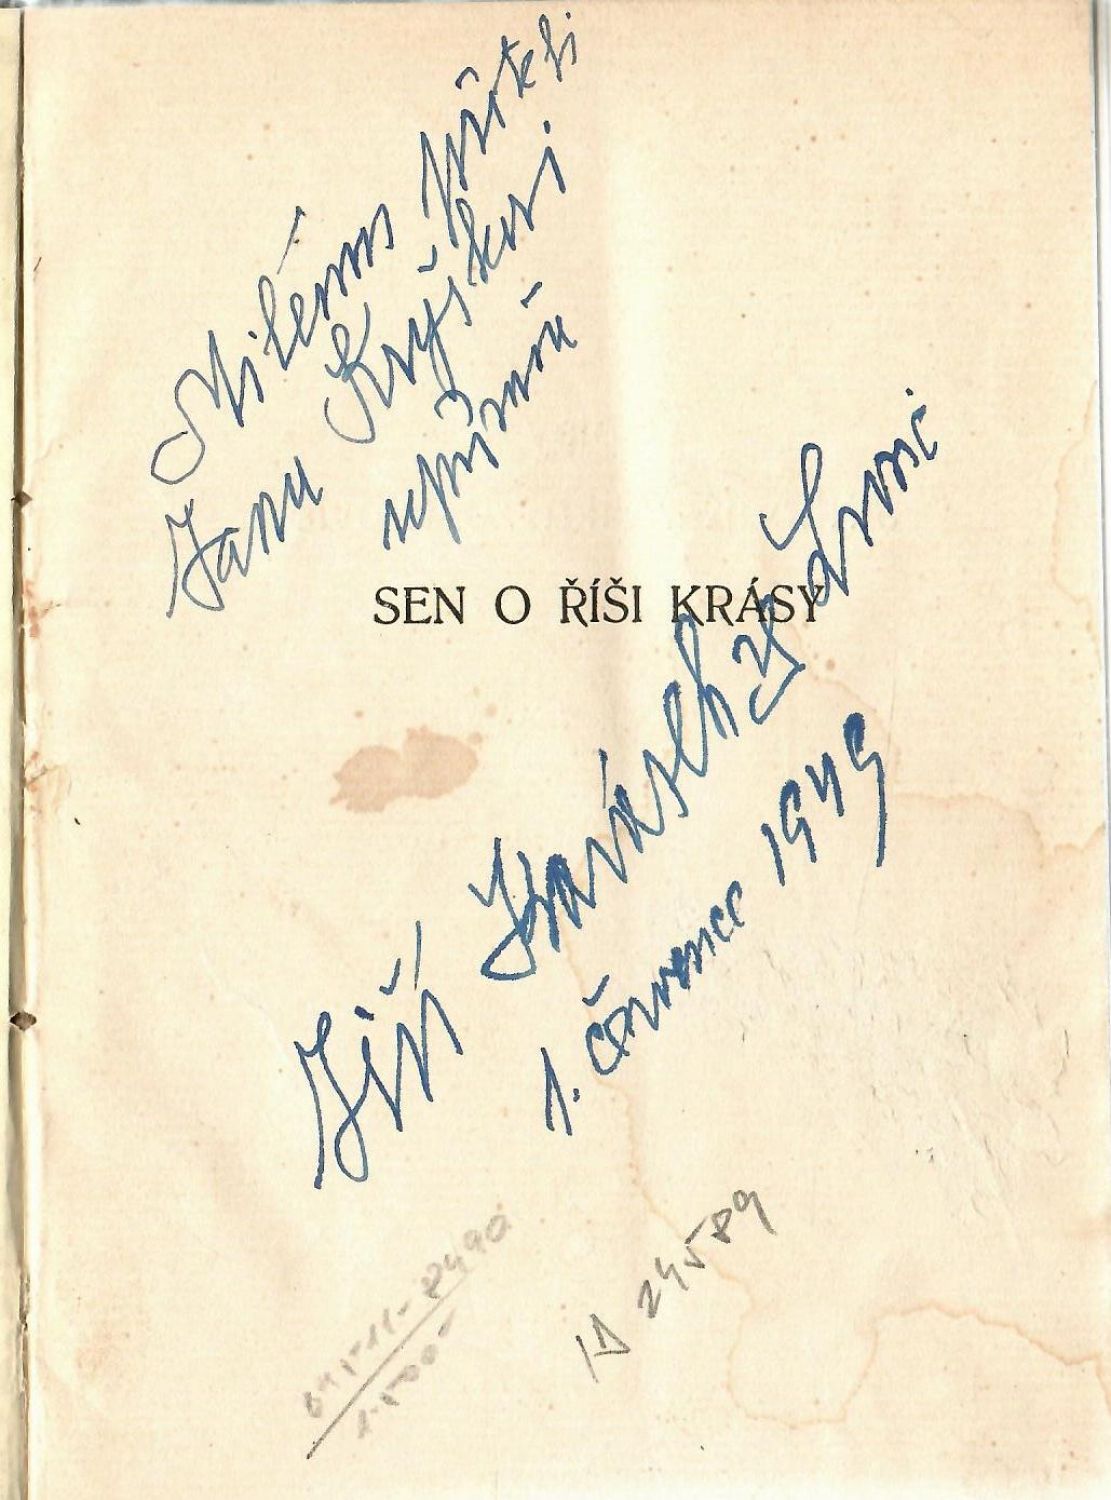 Milému příteli
Janu Kryškovi
upřímně
SEN O ŘÍŠI KRÁSY
Jiří Karásek ze Lvovic
1. července 1949
24589